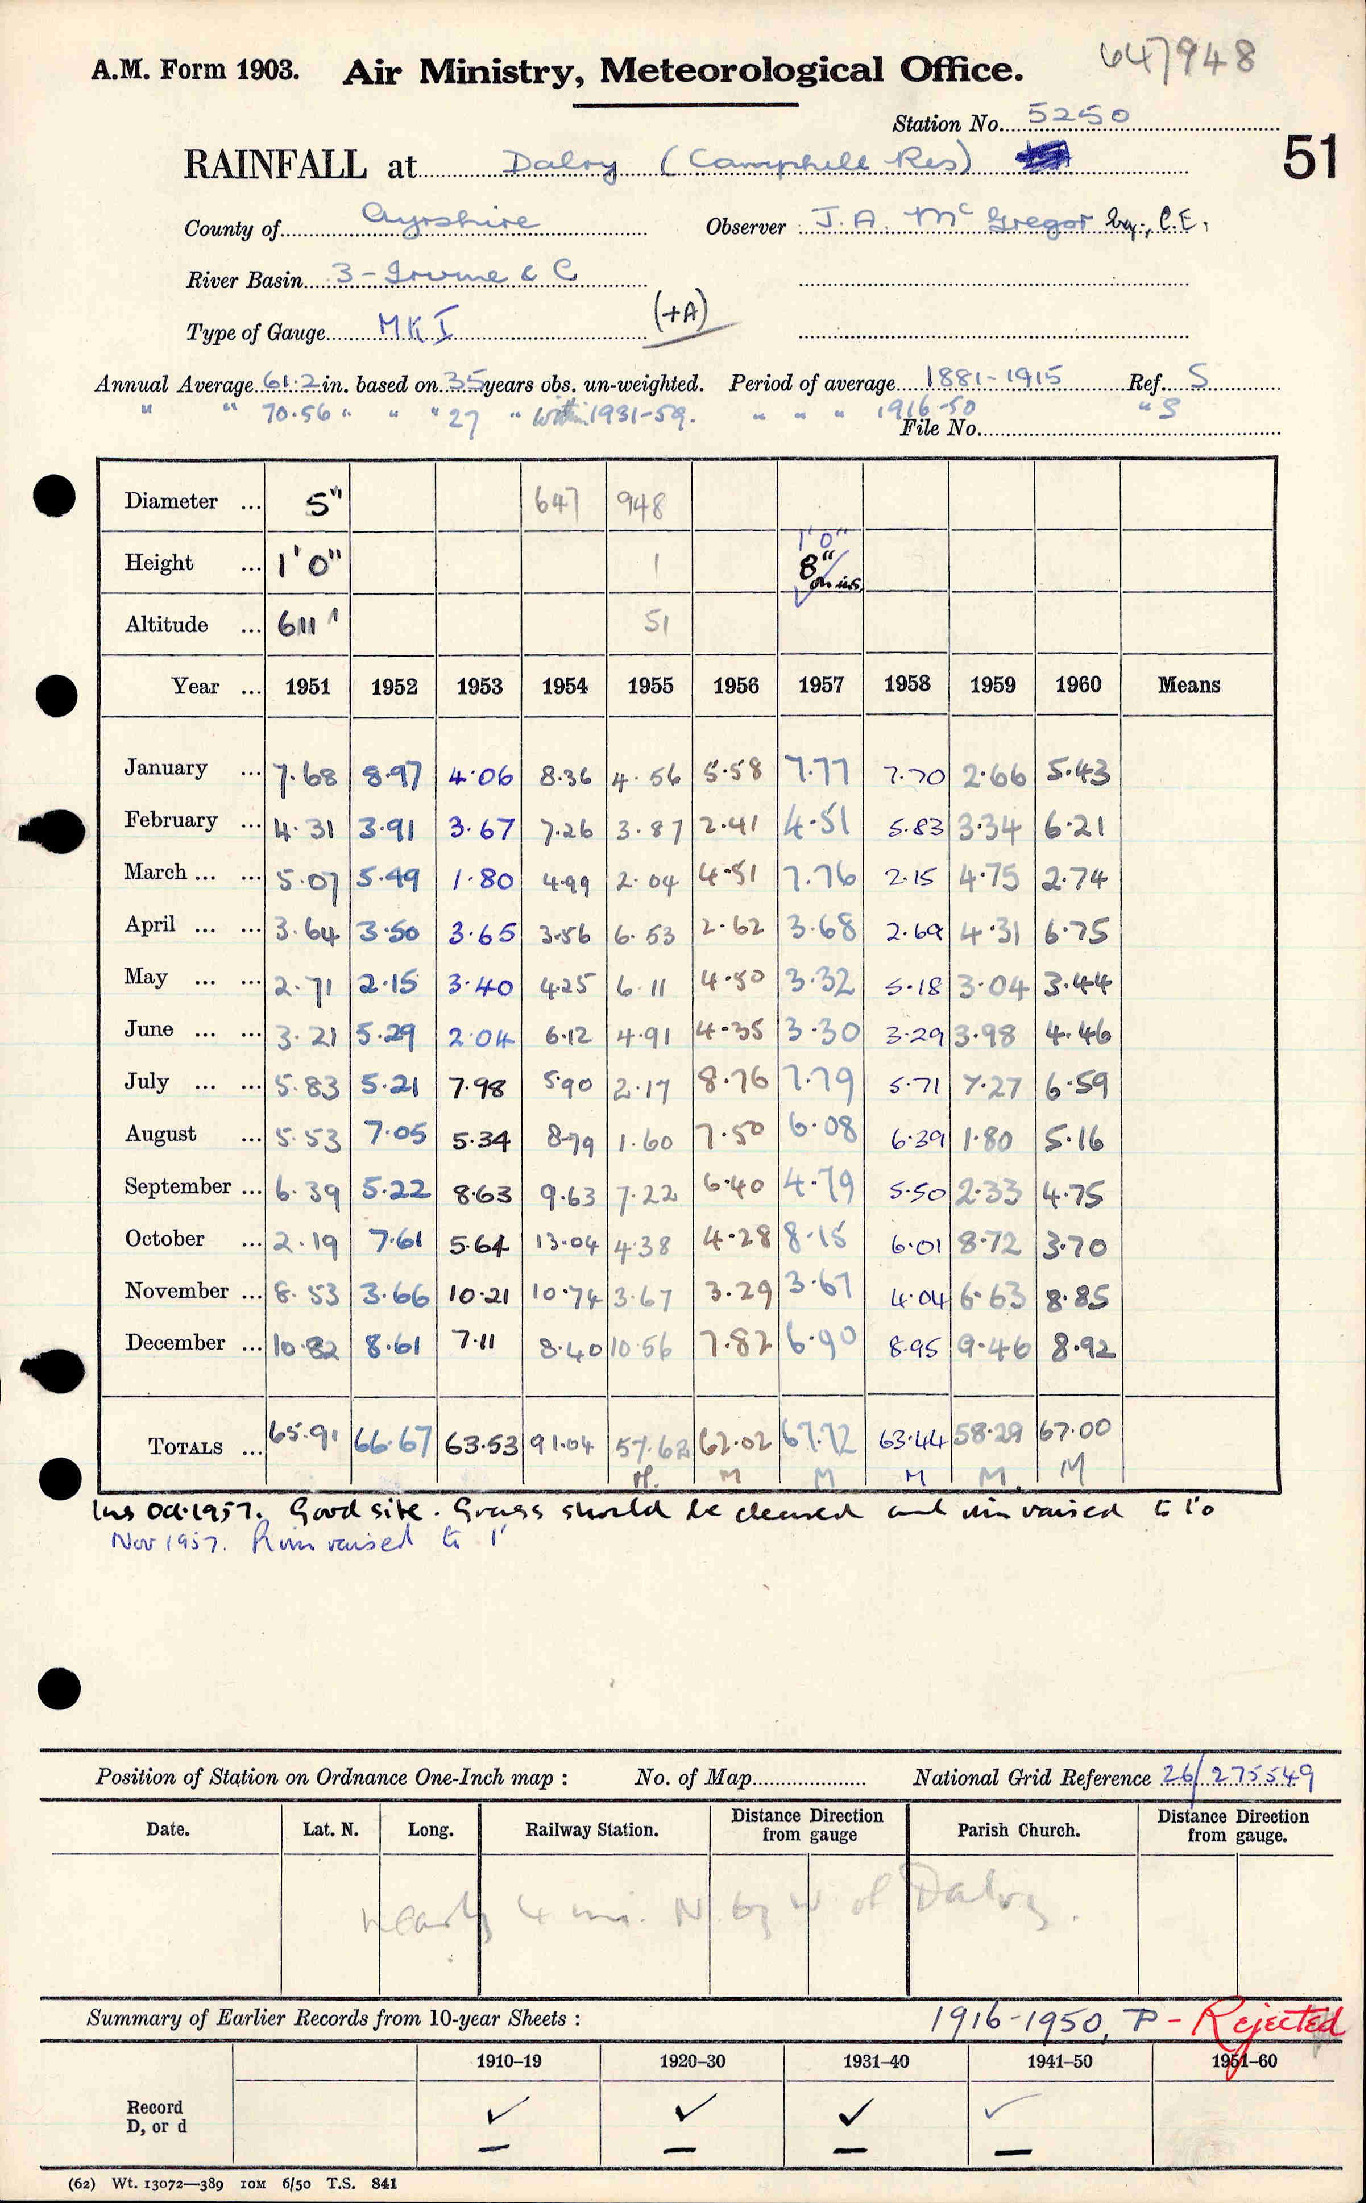 647948
A.M. Form 1903. Air Ministry, Meteorological Office.
Station No. 5250
51
RAINFALL at Dalry (Camphill Res)
County of Ayrshire Observer J. A. McGregor Esq., C.E.
River Basin 3 - Irvine & C
Type of Gauge MK I (+A)
Annual Average 61.2 in. based on 35 years obs. un-weighted. Period of average 1881-1915 Ref. S
" " 70.56 " " " 27 " within 1931-59. " " " 1916-50 " S
File No.
Diameter ... 5" 647 948
Height ... 1'0" 1 1'0" 8" on ins.
Altitude ... 611' 51
Year ... 1951 1952 1953 1954 1955 1956 1957 1958 1959 1960 Means
January ... 7.68 8.97 4.06 8.36 4.56 5.58 7.77 7.70 2.66 5.43
February ... 4.31 3.91 3.67 7.26 3.87 2.41 4.51 5.83 3.34 6.21
March ... ... 5.07 5.49 1.80 4.99 2.04 4.51 7.76 2.15 4.75 2.74
April ... ... 3.64 3.50 3.65 3.56 6.53 2.62 3.68 2.69 4.31 6.75
May ... ... 2.71 2.15 3.40 4.25 6.11 4.50 3.32 5.18 3.04 3.44
June ... ... 3.21 5.29 2.04 6.12 4.91 4.35 3.30 3.29 3.98 4.46
July ... ... 5.83 5.21 7.98 5.90 2.17 8.76 7.79 5.71 7.27 6.59
August ... 5.53 7.05 5.34 8.79 1.60 7.50 6.08 6.39 1.80 5.16
September ... 6.39 5.22 8.63 9.63 7.22 6.40 4.79 5.50 2.33 4.75
October ... 2.19 7.61 5.64 13.04 4.38 4.28 8.15 6.01 8.72 3.70
November ... 8.53 3.66 10.21 10.74 3.67 3.29 3.67 4.04 6.63 8.85
December ... 10.82 8.61 7.11 8.40 10.56 7.82 6.90 8.95 9.46 8.92
TOTALS ... 65.91 66.67 63.53 91.04 57.62 62.02 67.72 63.44 58.29 67.00
M. M M M M. M
Ins Oct.1957. Good site. Grass should be cleared and rim raised to 1'0
Nov 1957. Rim raised to 1'
Position of Station on Ordnance One-Inch map : No. of Map National Grid Reference 26/275549
Date. Lat. N. Long. Railway Station. Distance Direction from gauge Parish Church. Distance Direction from gauge.
nearly 4 mi. N by W of Dalry.
Summary of Earlier Records from 10-year Sheets : 1916-1950, P - Rejected
1910-19 1920-30 1931-40 1941-50 1951-60
Record D, or d ✓ ✓ ✓ ✓
(62) Wt. 13072—389 10M 6/50 T.S. 841